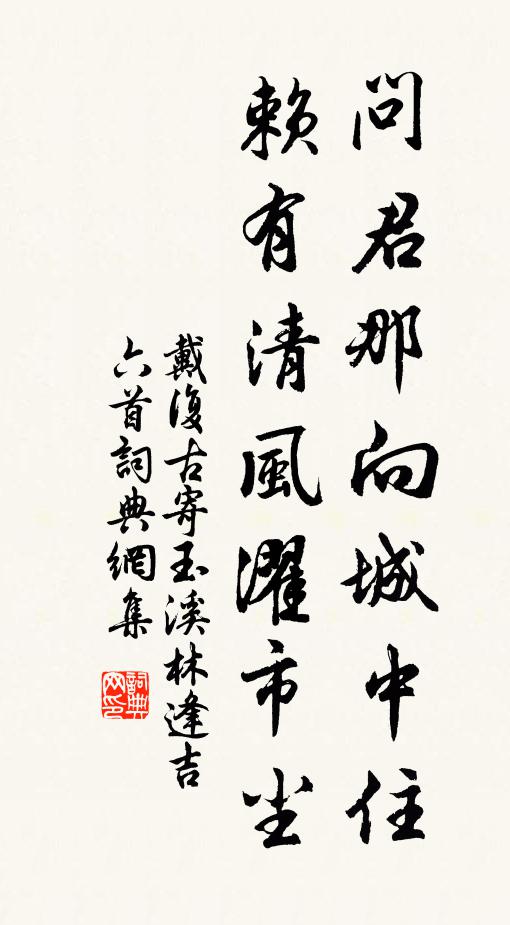 問君那向城中住
賴有清風濯市尘
戴復古寄玉溪林逢吉
六首詞典網集
詞典
网印